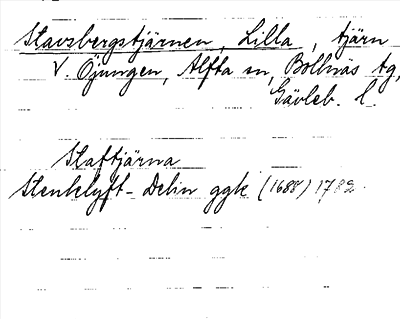 Stavsbergstjärnen, Lilla, tjärn
V. Öjungen, Alfta sn, Bollnäs tg,
Gävleb. l.
Staftjärna
Stenklyft-Delin ggk (1688) 1782.